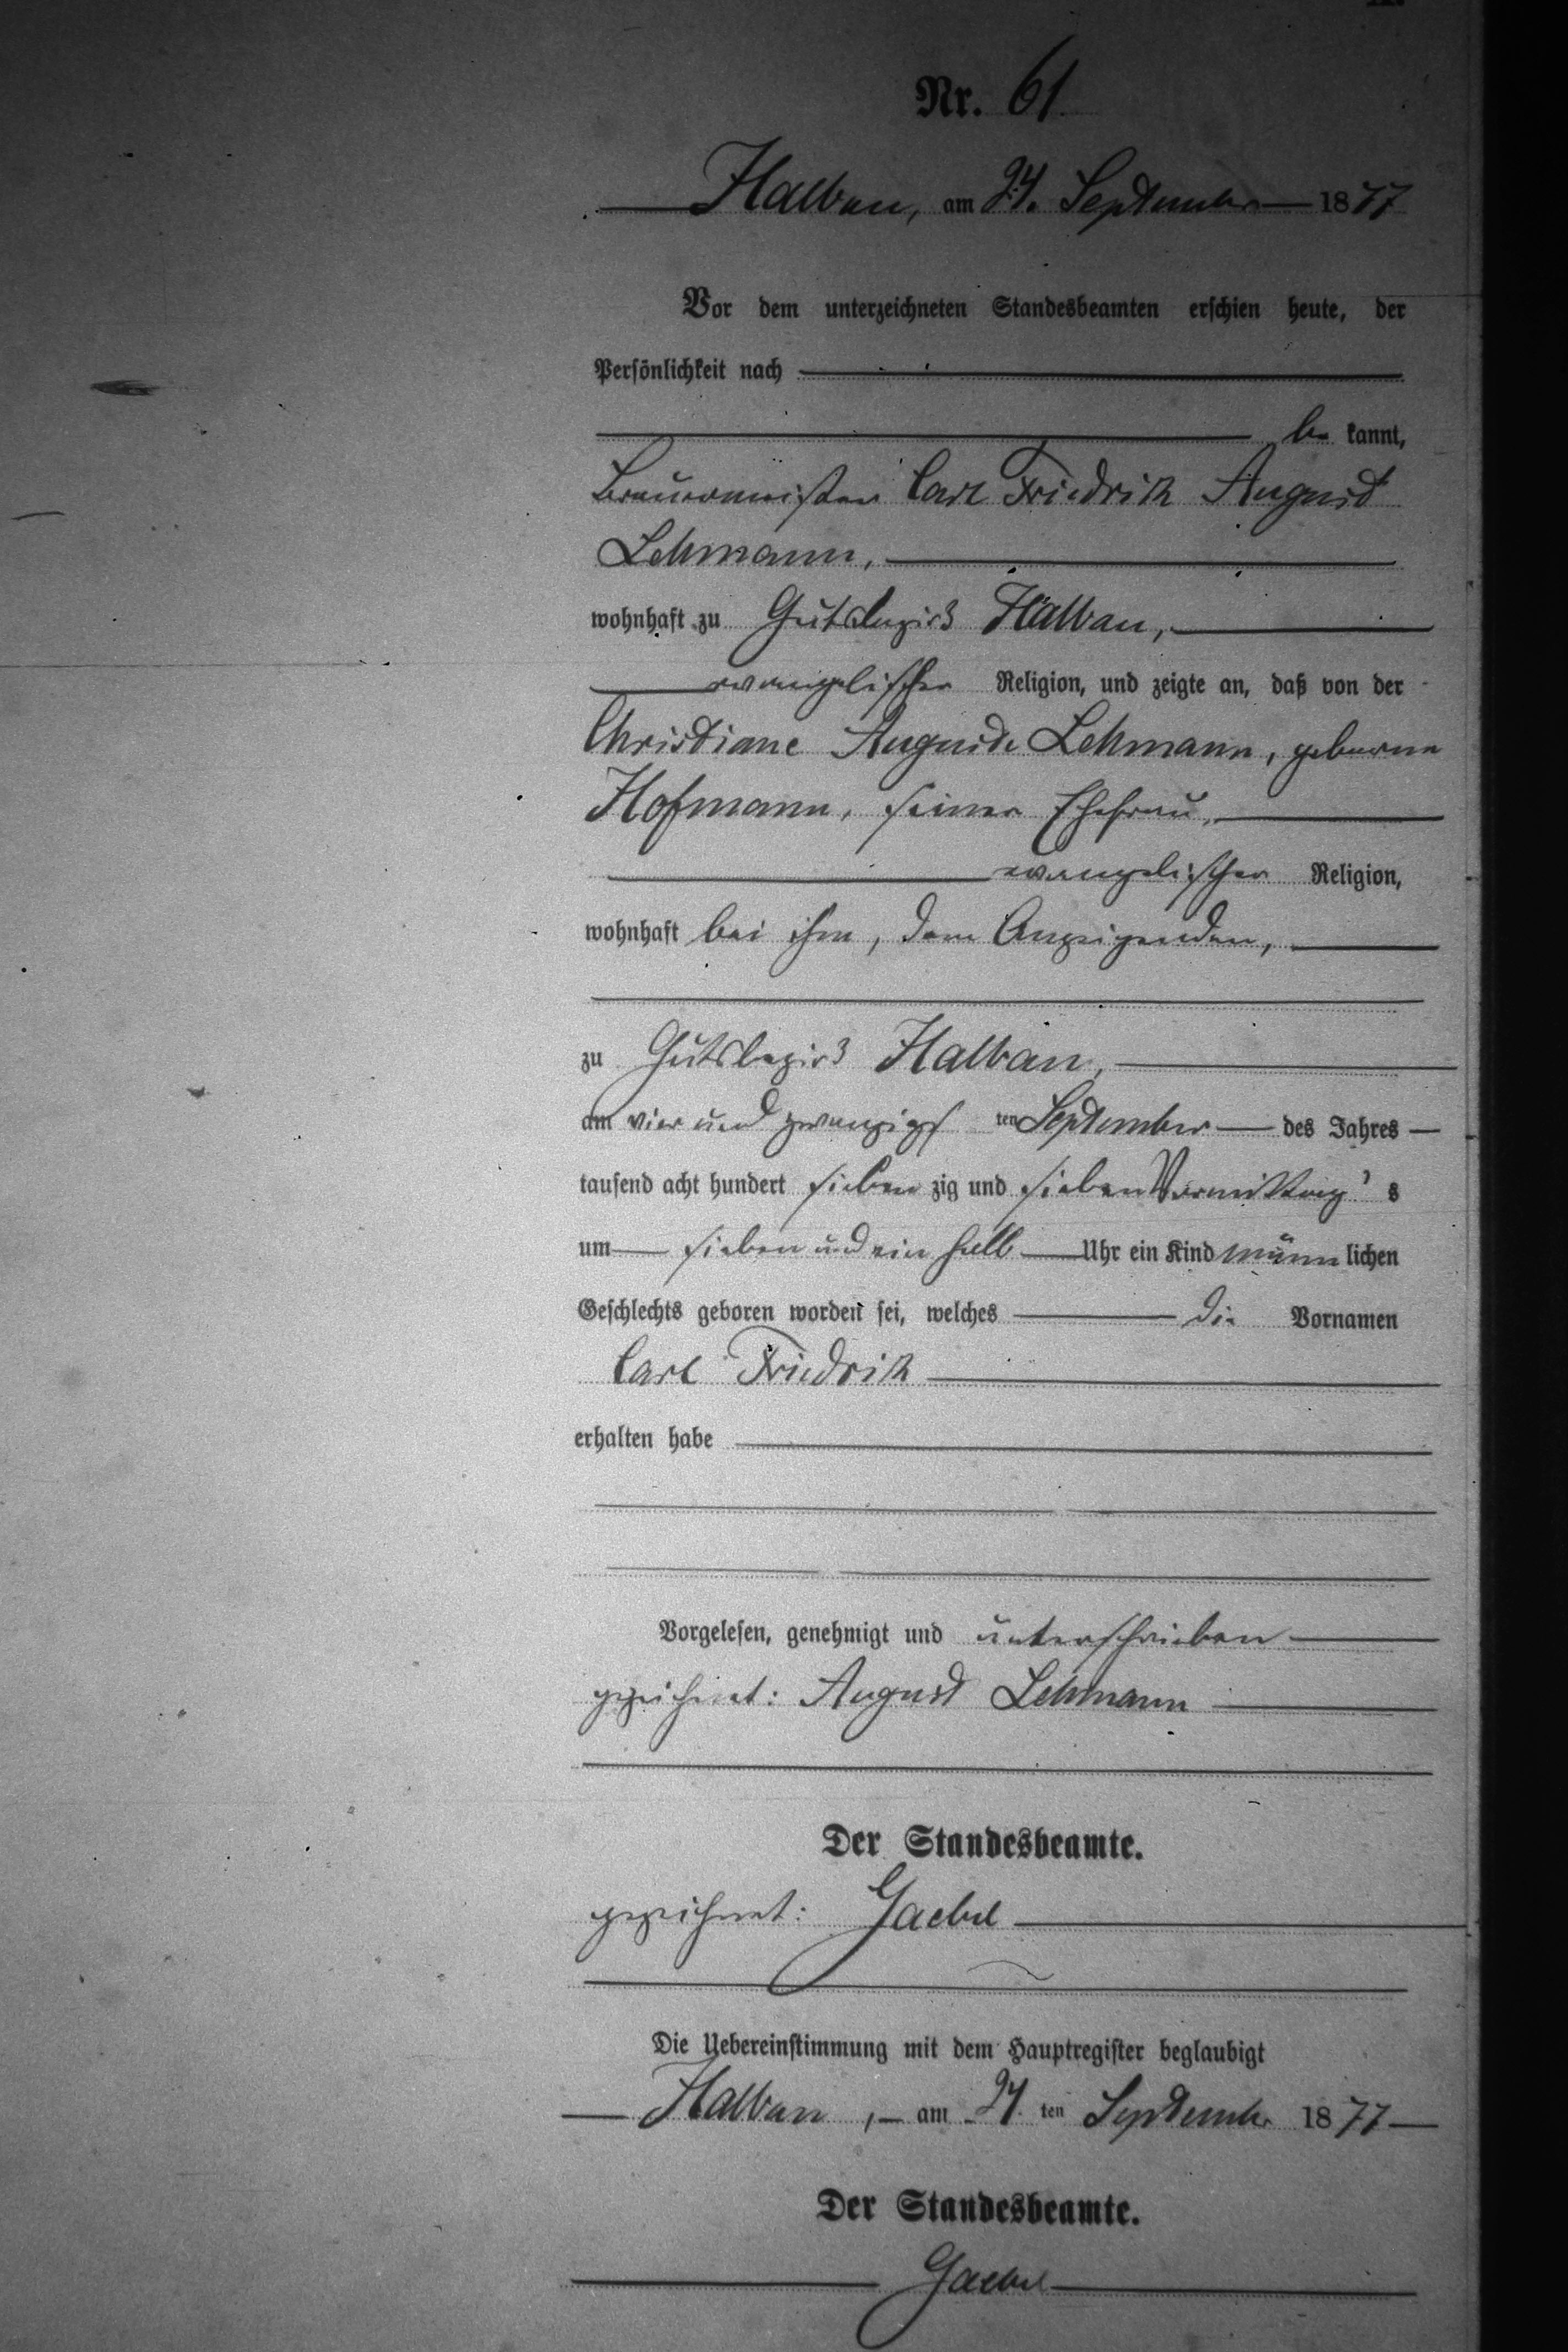 Nr. 61.
Halbau, am 24. September 1877
Vor dem unterzeichneten Standesbeamten erschien heute, der
Persönlichkeit nach
be kannt,
Brauermeister Carl Friedrich August
Lehmann,
wohnhaft zu Gutsbezirk Halbau,
evangelischer Religion, und zeigte an, daß von der
Christiane Auguste Lehmann, geborne
Hofmann, seiner Ehefrau,
evangelischer Religion,
wohnhaft bei ihm, dem Anzeigenden,
zu Gutsbezirk Halbau,
am vier und zwanzigsten September des Jahres
tausend acht hundert sieben zig und sieben Vormittags
um sieben und ein halb Uhr ein Kind männlichen
Geschlechts geboren worden sei, welches die Vornamen
Carl Friedrich
erhalten habe
Vorgelesen, genehmigt und unterschrieben
gezeichnet: August Lehmann
Der Standesbeamte.
gezeichnet: Gaebel
Die Uebereinstimmung mit dem Hauptregister beglaubigt
Halbau, am 24. ten September 1877
Der Standesbeamte.
Gaebel